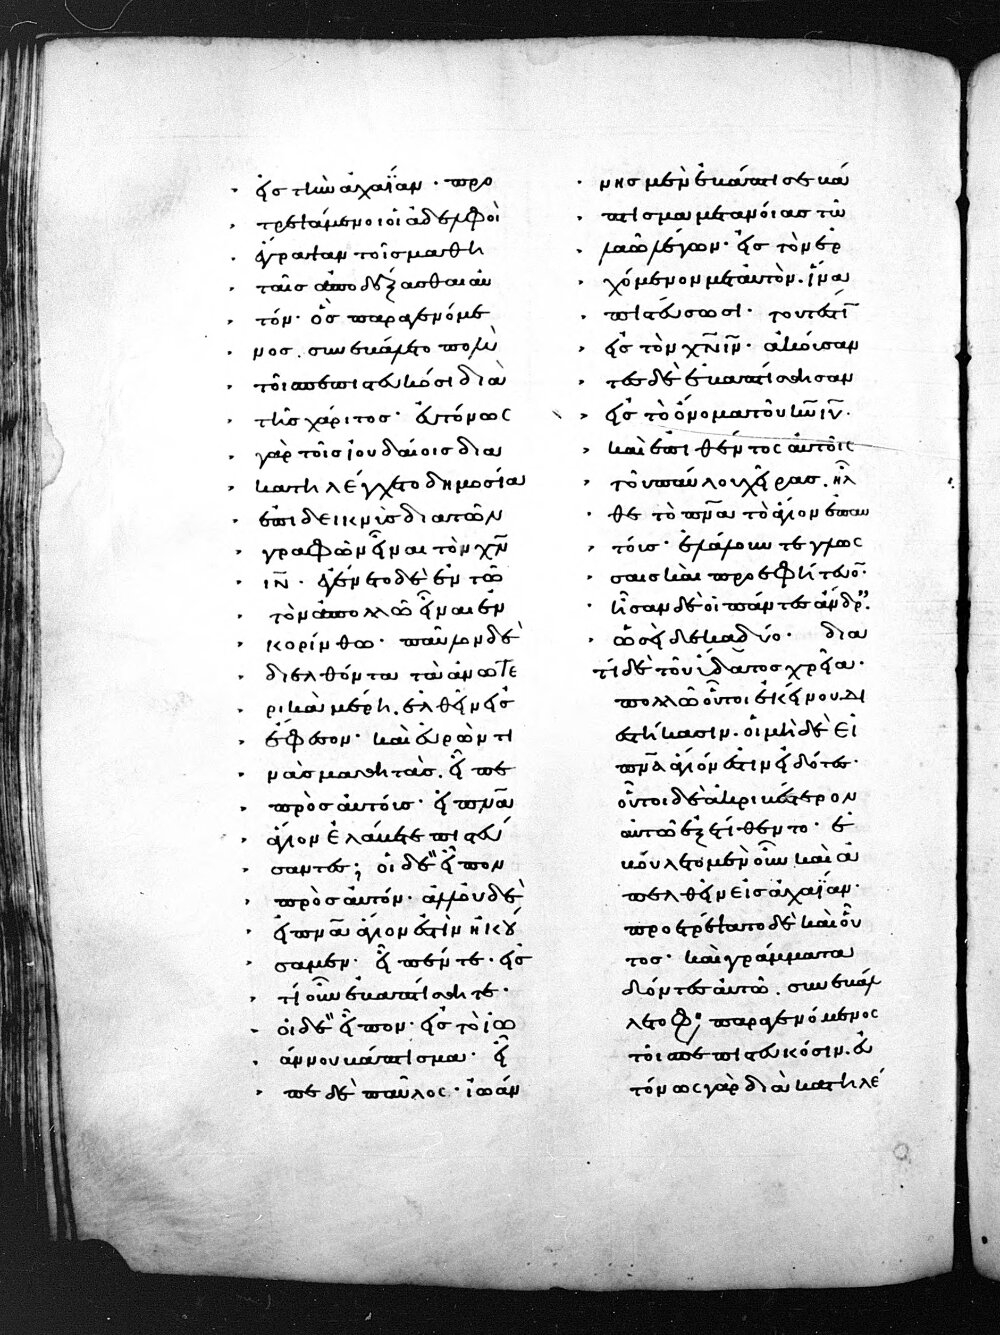 εἰς τὴν ἀχαΐαν · προ
τρεψάμενοι οἱ ἀδελφοὶ
ἔγραψαν τοῖς μαθη
ταῖς ἀποδέξασθαι αὐ
τόν · ὃς παραγενόμε
νος . συνεβάλετο πολὺ
τοῖς πεπιστευκόσι διὰ
τῆς χάριτος · εὐτόνως
γὰρ τοῖς ἰουδαίοις δια
κατηλέγχετο δημοσία
ἐπιδεικνὺς διὰ τῶν
γραφῶν εἶναι τὸν χ̅ν̅
ι̅ν̅ · ἐγένετο δὲ ἐν τῶ
τὸν ἀπολλῶ εἶναι ἐν
κορίνθω · παῦλον δὲ
διελθόντα τὰ ἀνωτε
ρικὰ μέρη . ἐλθεῖν εἰς
ἔφεσον · καὶ εὑρὼν τι
νὰς μαθητὰς . εἶπε
πρὸς αὐτούς · εἰ π̅ν̅α̅
ἅγιον ἐλάβετε πιστεύ
σαντες ; οἱ δὲ εἶπον
πρὸς αὐτόν · ἀλλ' οὐδὲ
εἰ π̅ν̅α̅ ἅγιόν ἐστιν ἠκού
σαμεν · εἶπέν τε · εἰς
τί οὖν ἐβαπτίσθητε ·
οἱ δὲ εἶπον · εἰς τὸ ἰω
άννου βάπτισμα · εἶ
πε δὲ παῦλος · ἰωάν
νης μὲν ἐβάπτισε βά
πτισμα μετανοίας τῶ
λαῶ λέγων · εἰς τὸν ἐρ
χόμενον μετ' αὐτὸν . ἵνα
πιστεύσωσι · τουτέστι
εἰς τὸν χ̅ν̅ ι̅ν̅ · ἀκούσαν
τες δὲ ἐβαπτίσθησαν
εἰς τὸ ὄνομα τοῦ κ̅υ̅ ι̅υ̅ ·
καὶ ἐπιθέντος αὐτοῖς
τοῦ παύλου χεῖρας . ἦλ
θε τὸ π̅ν̅α̅ τὸ ἅγιον ἐπ' αυ
τούς · ἐλάλουν τε γλώσ
σαις καὶ προεφήτευο̅ν ·
ἦσαν δὲ οἱ πάντες ἄνδρ ·
ὡσεὶ δεκαδύο · δια
τί δὲ τοῦ ὕδατος χρεία ·
πολλῶ οὗτοι ἐκείνου δι
εστήκασιν . οἱ μηδὲ εἰ
π̅ν̅α̅ ἅγιόν ἐστιν εἰδότες ·
οὗτοι δὲ ἀκριβέστερον
αὐτῶ ἐξετίθεντο · ἐ
βούλετο μὲν οὖν καὶ ἀ
πελθεῖν εἰς ἀχαΐαν ·
προετρέψαντο δὲ καὶ οὗ
τος · καὶ γράμματα
διδόντες αὐτῶ . συνεβάλ
λετο φ ; παραγενόμενος
τοῖς πεπιστευκόσιν . εὐ
τόνως γὰρ διακατηλέ